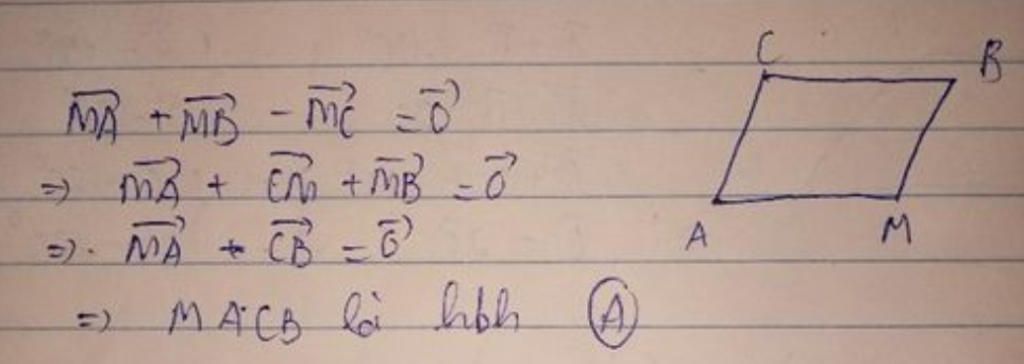 C B
\overrightarrow{MA} + \overrightarrow{MB} - \overrightarrow{MC} = \overrightarrow{0}
=> \overrightarrow{MA} + \overrightarrow{CM} + \overrightarrow{MB} = \overrightarrow{0}
=> \overrightarrow{MA} + \overrightarrow{CB} = \overrightarrow{0}
A M
=> MACB là hbh Ⓐ